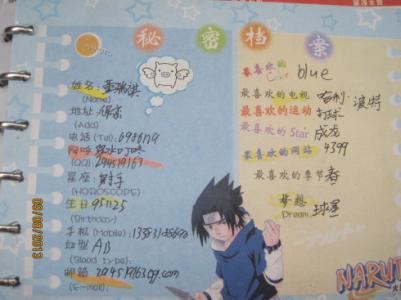 秘密档案
姓名:
(Name)
地址:保定
(Add)
电话(Tel):
QQ: 294519163
星座:射手
(HOROSCOPE)
生日 951125
(Birthday)
手机(Mobile):
血型 AB
(Blood type)
邮箱 294519163@qq.com
(E-mail)
最喜欢的
Color blue
最喜欢的电视 哈利·波特
最喜欢的运动 打球
最喜欢的 Star 成龙
最喜欢的网站 4399
最喜欢的季节 春
梦想
Dream 球星
NARUTO
09/08/2013